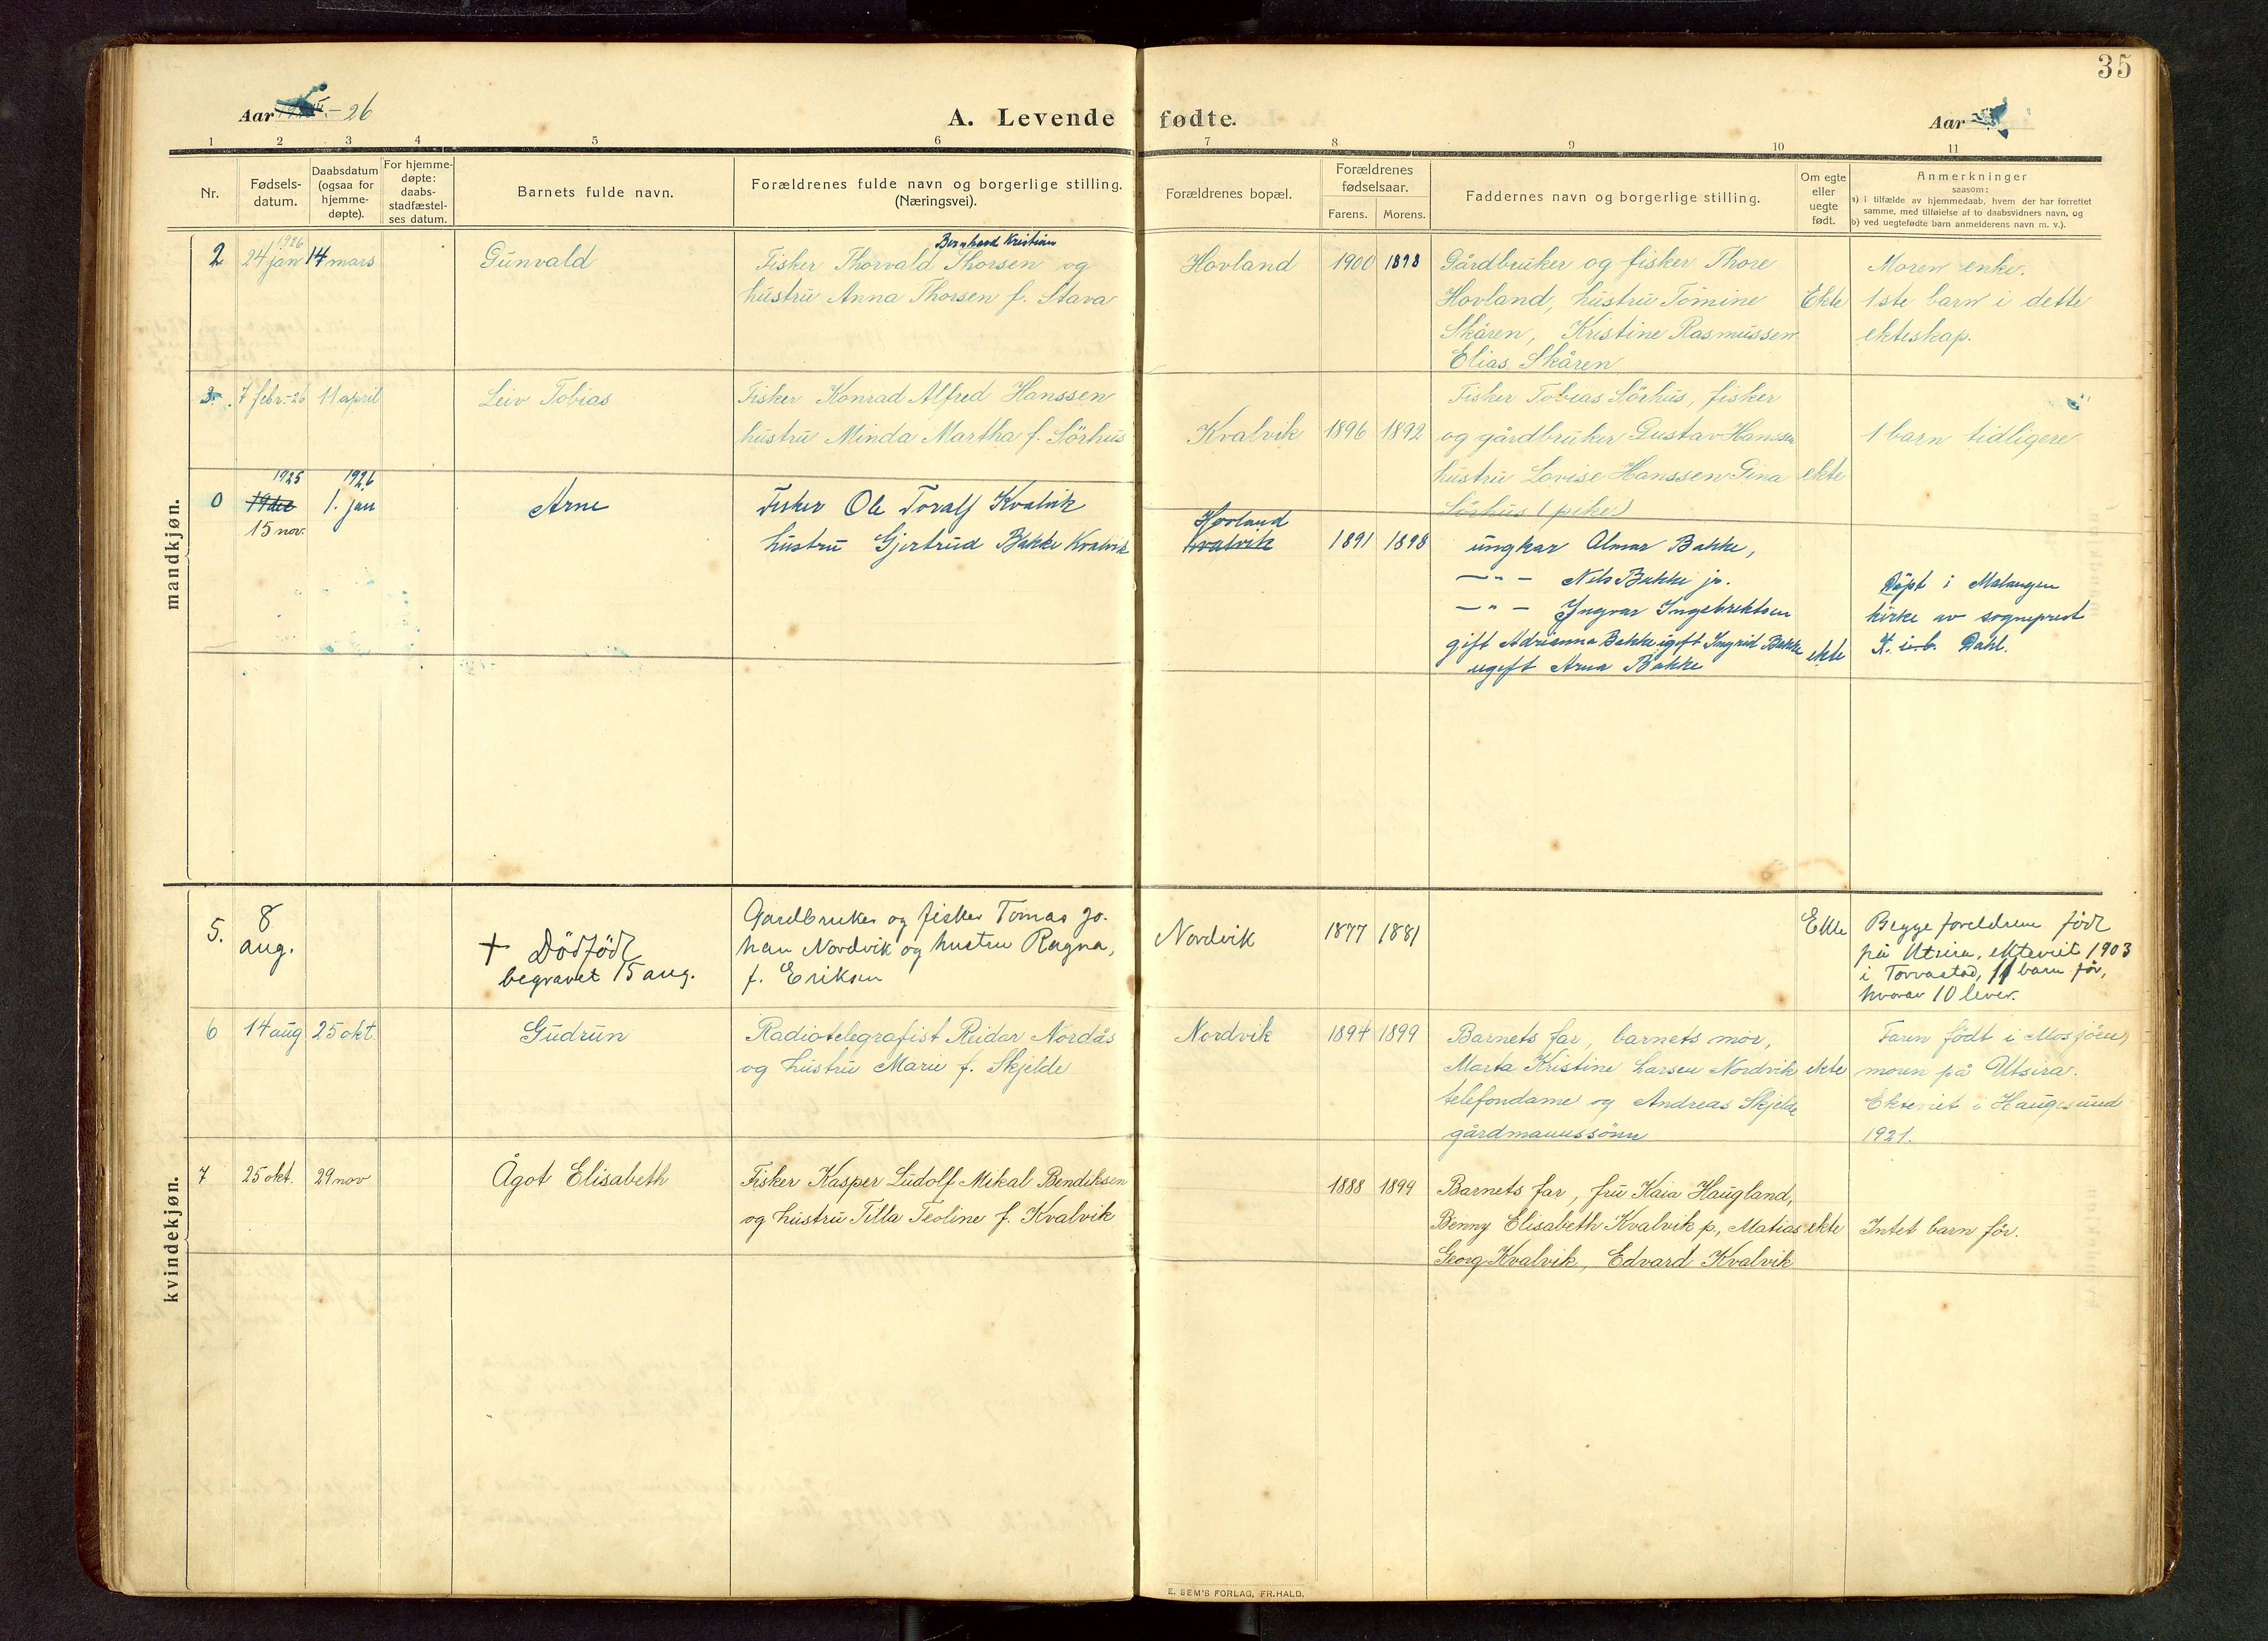 35
Aar – 26
A. Levende fødte.
Aar
1 2 3 4 5 6 7 8 9 10 11
Nr.
Fødsels-
datum.
Daabsdatum
(ogsaa for
hjemme-
døpte).
For hjemme-
døpte:
daabs-
stadfæstel-
ses datum.
Barnets fulde navn.
Forældrenes fulde navn og borgerlige stilling.
(Næringsvei).
Forældrenes bopæl.
Forældrenes
fødselsaar.
Farens. Morens.
Faddernes navn og borgerlige stilling.
Om egte
eller
uegte
født.
Anmerkninger
saasom:
a) i tilfælde av hjemmedaab, hvem der har forrettet
samme, med tilføielse af to daabsvidners navn, og
b) ved uegtefødte børn anmelderens navn m. v.).
mandkjøn.
2
1926
24 jan
14 mars
Gunvald
Bernhard Kristian
Fisker Thorvald Thorsen og
hustru Anna Thorsen f. Stava
Hovland
1900
1898
Gårdbruker og fisker Thore
Hovland, hustru Tomine
Skåren, Kristine Rasmussen
Elias Skåren
Ekte
Moren enke.
1ste barn i dette
ekteskap.
3
7 febr.-26
11 april
Leiv Tobias
Fisker Konrad Alfred Hanssen
hustru Minda Martha f. Sörhus
Kvalvik
1896
1892
Fisker Tobias Sörhus, fisker
og gårdbruker Gustav Hanssen
hustru Lovise Hanssen Gina
Sörhus (pike)
ekte
1 barn tidligere
0
1925
19 des
15 nov.
1926
1. jan
Arne
Fisker Ole Toralf Kvalvik
hustru Gjertrud Bakke Kvalvik
Hovland
Kvalvik
1891
1898
ungkar Almar Bakke,
— " — Nils Bakke jr.
— " — Ingvar Ingebriktsen
gift Adrianna Bakke ugift Ingrid Bakke
ugift Arna Bakke
ekte
Döpt i Malangen
kirke av sogneprest
K. i. b. Dahl.
kvindekjøn.
5.
8
aug.
† Dödfödt
begravet 15 aug.
Gardbruker og fisker Tomas Jo-
han Nordvik og hustru Ragna,
f. Eriksen
Nordvik
1877
1881
Ekte
Begge foreldrene födt
på Utsira, ekteviet 1903
i Torvastad, 11 barn för,
hvorav 10 lever.
6
14 aug
25 okt.
Gudrun
Radiotelegrafist Reidar Nordås
og hustru Marie f. Skjelde
Nordvik
1894
1899
Barnets far, barnets mor,
Marta Kristine Larsen Nordvik
telefondame og Andreas Skjelde
gårdmannssönn
ekte
Faren födt i Mosjöen,
moren på Utsira.
Ekteviet i Haugesund
1921.
7
25 okt.
29 nov
Ågot Elisabeth
Fisker Kasper Ludolf Mikal Bendiksen
og hustru Tilla Teoline f. Kvalvik
1888
1899
Barnets far, fru Kaia Haugland,
Benny Elisabeth Kvalvik p., Matias
Georg Kvalvik, Edvard Kvalvik
ekte
Intet barn för.
E. SEM'S FORLAG, FR.HALD.